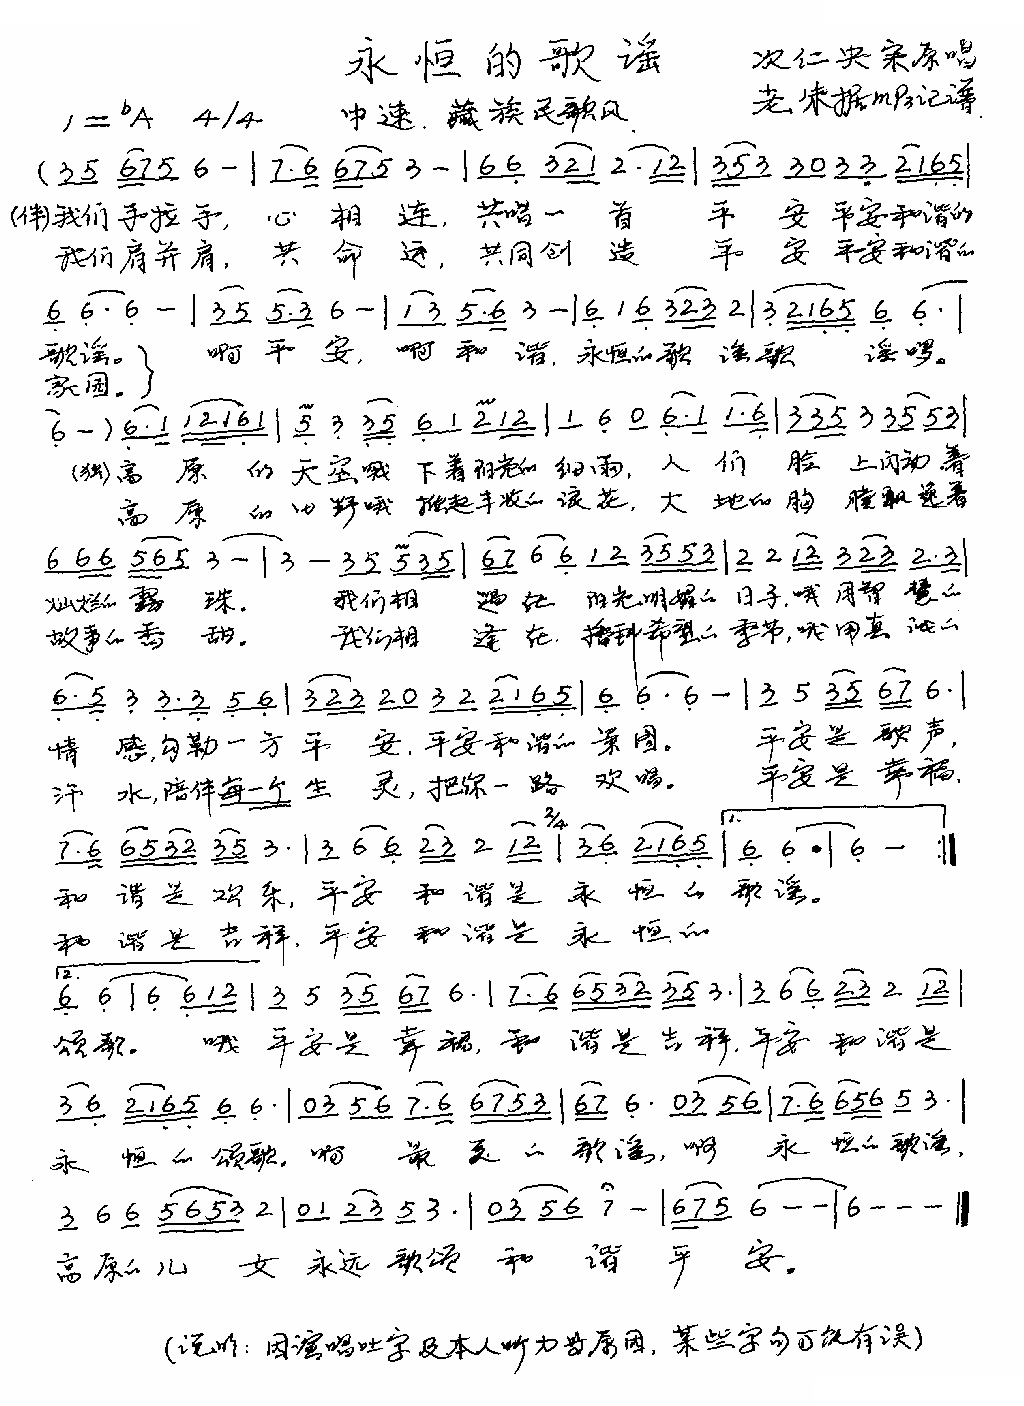 永恒的歌谣
次仁央宗原唱
1=♭A 4/4 中速、藏族民歌风
老朱据MP3记谱
(35 675 6 - | 7·6 675 3 - | 66 321 2·12 | 353 30 33 2165 |
(伴)我们手拉手, 心相连, 共唱一首平安平安和谐的
我们肩并肩, 共命运, 共同创造平安平安和谐的
6 6·6 - | 35 5·3 6 - | 13 5·6 3 - | 6 16 323 2 | 3 2165 6 6· |
歌谣。 啊平安, 啊和谐, 永恒的歌谣歌谣啰。
家园。
6 -) 6·1 12161 | 5 3 35 61 212 | 1 6 0 6·1 1·6 | 335 3 3553 |
(独)高原的天空哦下着阳光的细雨, 人们脸上闪动着
高原的田野哦推起丰收的浪花, 大地的胸膛飘逸着
666 565 3 - | 3 - 35 535 | 67 66 12 3553 | 2 2 12 323 2·3 |
灿烂的露珠。 我们相遇在阳光明媚的日子, 哦用智慧的
故事的香甜。 我们相逢在播种希望的季节, 哦用真诚的
6·5 3 3·3 56 | 323 20 32 2165 | 6 6·6 - | 3 5 35 67 6· |
情感, 勾勒一方平安, 平安和谐的美图。 平安是歌声,
汗水, 陪伴每一个生灵, 把你一路欢唱。 平安是幸福,
7·6 6532 35 3· | 3 6 6 23 2 12 | 2/4 36 2165 | 1. 6 6· | 6 - :‖
和谐是欢乐, 平安和谐是永恒的歌谣。
和谐是吉祥, 平安和谐是永恒的
2. 6 6 | 6 612 | 3 5 35 67 6· | 7·6 6532 35 3· | 3 6 6 23 2 12 |
颂歌。 哦平安是幸福, 和谐是吉祥, 平安和谐是
36 2165 6 6· | 03 56 7·6 6753 | 67 6· 03 56 | 7·6 656 5 3· |
永恒的颂歌。啊最美的歌谣, 啊永恒的歌谣,
3 6 6 5653 2 | 01 23 5 3· | 03 56 7 - | 675 6 - - | 6 - - - ‖
高原的儿女永远歌颂和谐平安。
(说明: 因演唱吐字及本人听力等原因, 某些字句可能有误)